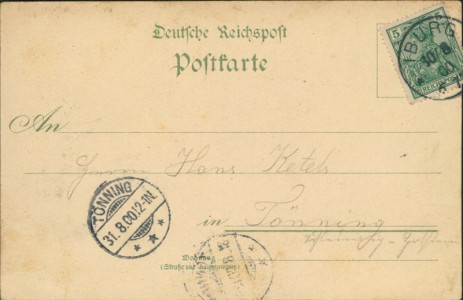 Deutsche Reichspost
Postkarte
5 5
BURG
An
Herrn Hans Ketels
TÖNNING
31.8.00.12-1N.
in Tönning
Schleswig-Holstein
Wohnung
(Straße und Hausnummer)